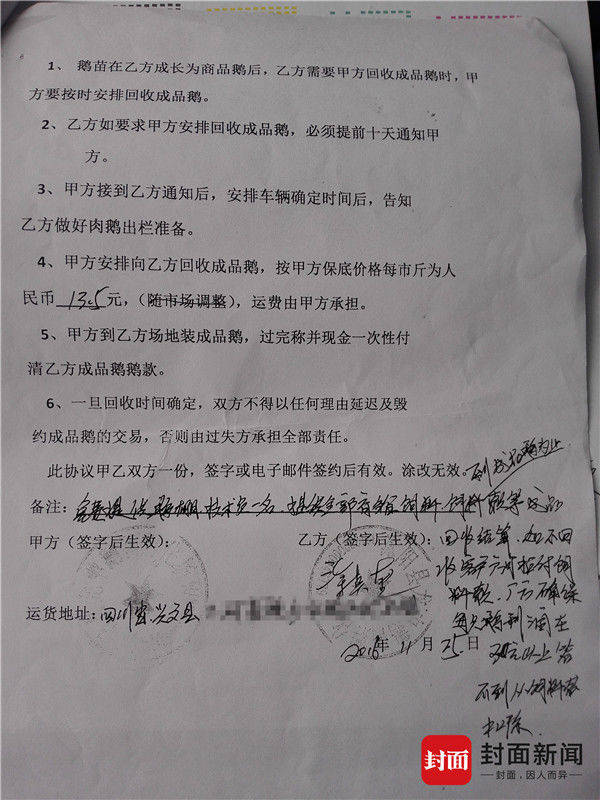 1、 鹅苗在乙方成长为商品鹅后，乙方需要甲方回收成品鹅时，甲
方要按时安排回收成品鹅。
2、乙方如要求甲方安排回收成品鹅，必须提前十天通知甲
方。
3、甲方接到乙方通知后，安排车辆确定时间后，告知
乙方做好肉鹅出栏准备。
4、甲方安排向乙方回收成品鹅，按甲方保底价格每市斤为人
民币 13.5 元，（随市场调整），运费由甲方承担。
5、甲方到乙方场地装成品鹅，过完称并现金一次性付
清乙方成品鹅鹅款。
6、一旦回收时间确定，双方不得以任何理由延迟及毁
约成品鹅的交易，否则由过失方承担全部责任。
此协议甲乙双方一份，签字或电子邮件签约后有效。涂改无效。
备注： 技术员一名 提供全部 饲料 饲料款等成品
甲方（签字后生效）： 乙方（签字后生效）： 回收结算 如不回
收 付饲
料款 确保
利润在
运货地址：四川省兴文县
2016年11月25日
元以上
不到从饲料款
扣除
封面 封面新闻
封面，因人而异